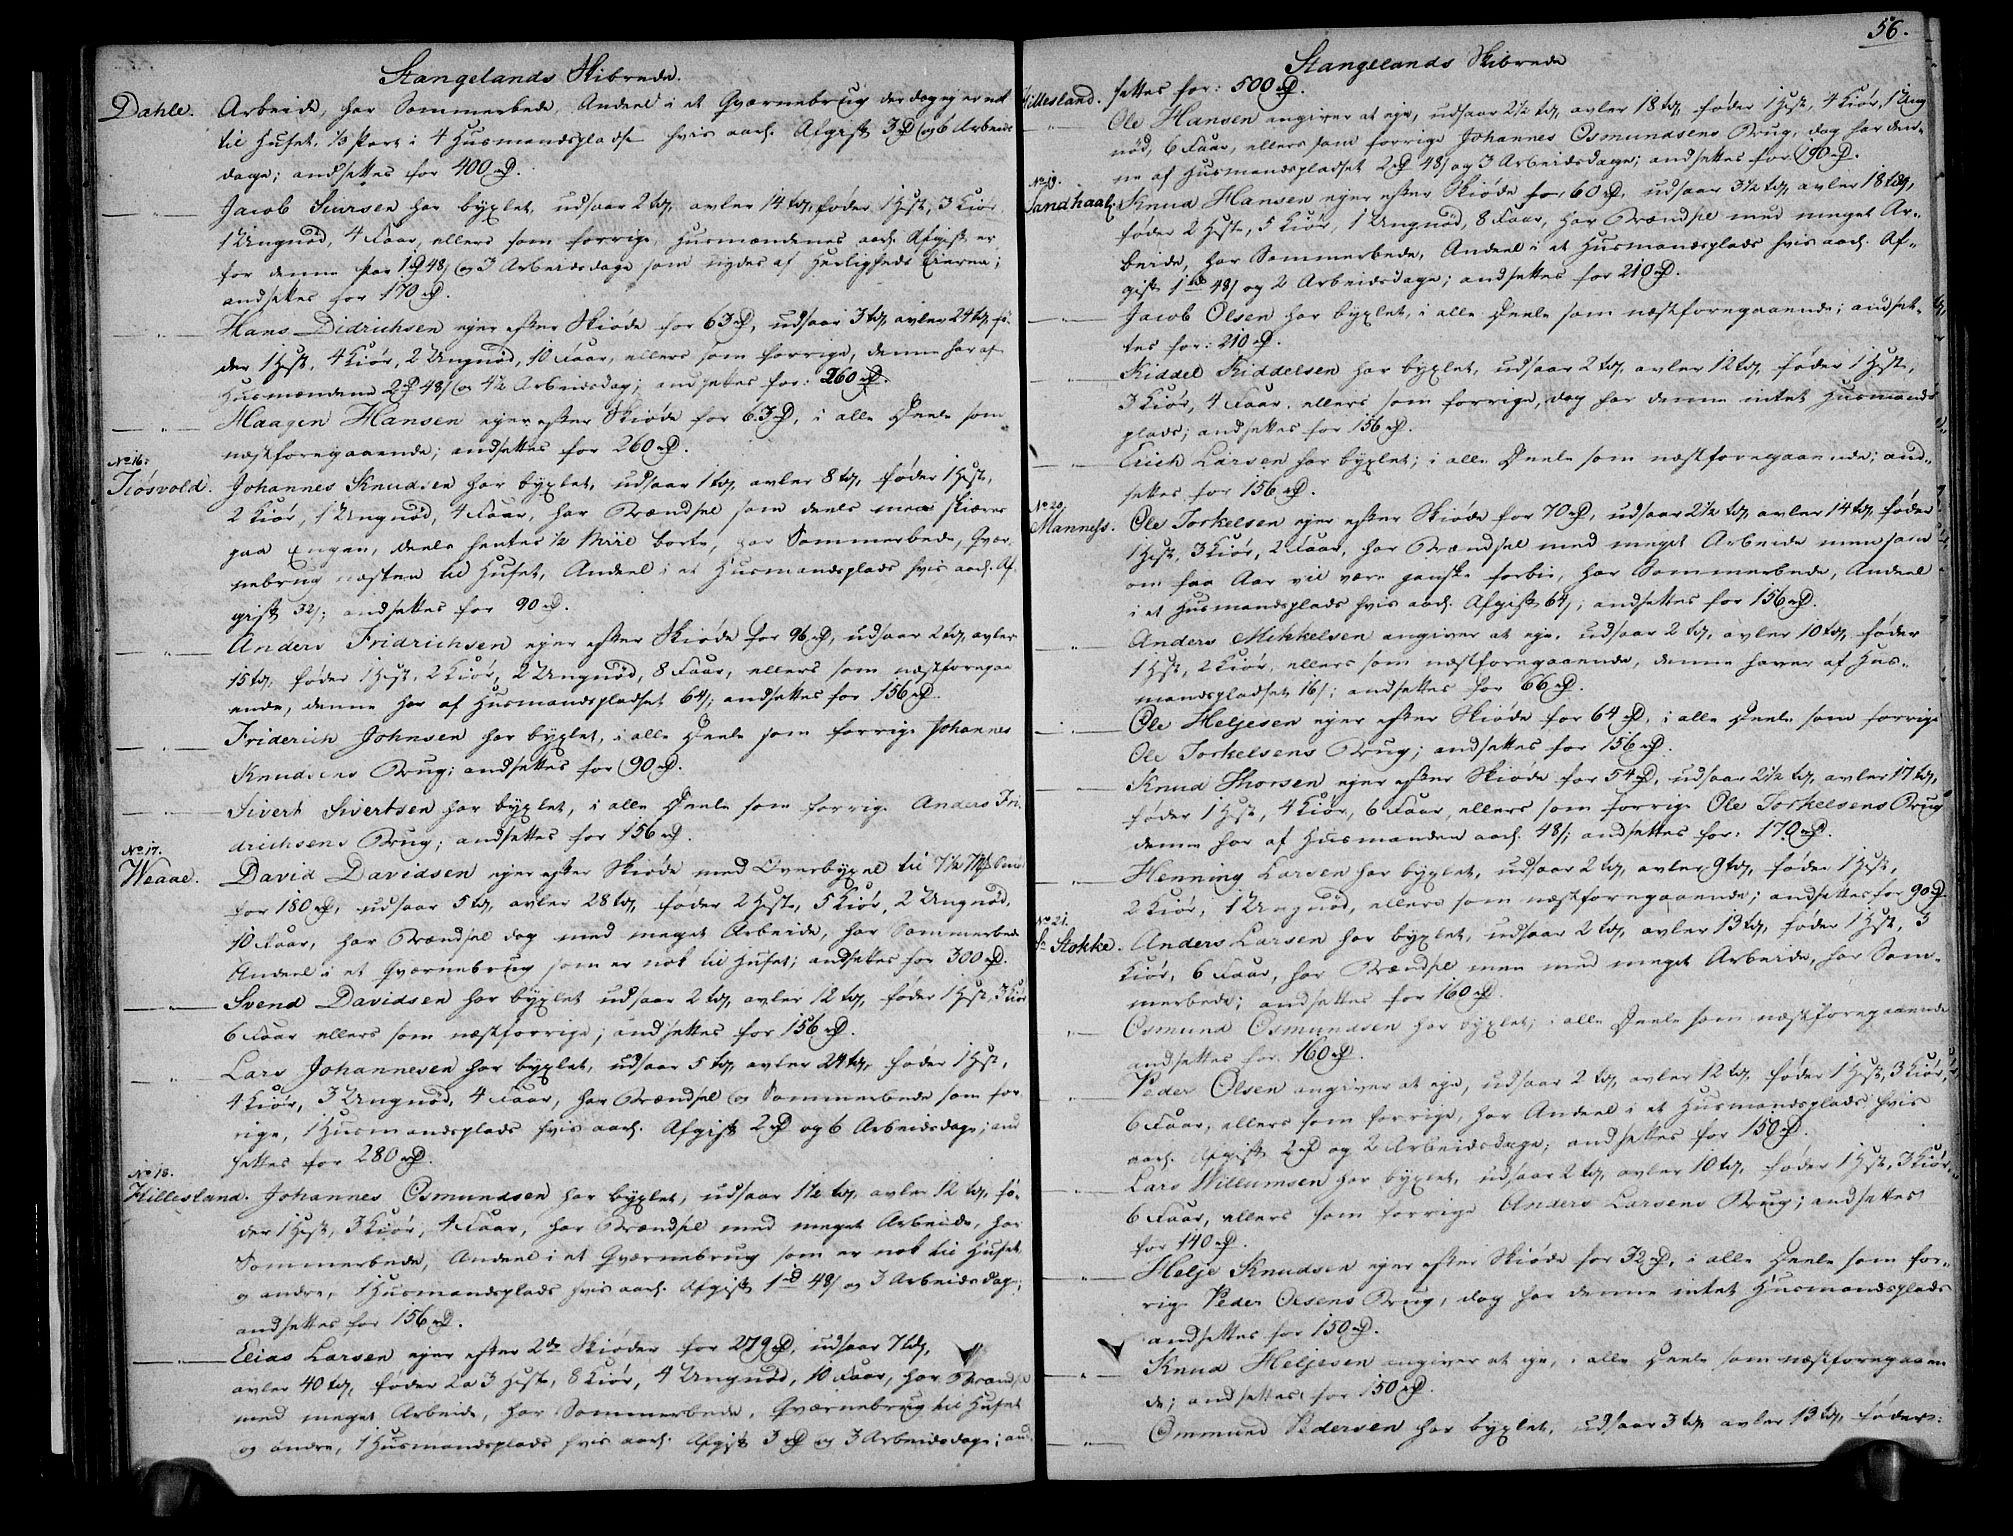 Stangelands Skibrede.
Dahle. Arbeide, har Sommerbede, Andeel i et Qværnebrug der dog ej er nok
til Huset, 1/3 Part i 4 Husmandspladse hvis aarl. Afgift 3 rD og 6 Arbeids
dage; andsettes for 400 rD.
Jacob Iversen har byxlet, udsaar 2 tdr, avler 14 tdr, føder 1 Hest, 3 Kiør
1 Ungnød, 4 Faar, ellers som forrige, Husmændenes aarl. Afgift er
for denne Par 1 rD 48 s og 3 Arbeidsdage som nydes af Herligheds Eieren;
andsettes for 170 rD.
Hans Didrichsen ejer efter Skiøde for 63 rD, udsaar 3 tdr, avler 24 tdr, fø-
der 1 Hest, 4 Kiør, 2 Ungnød, 10 Faar, ellers som forrige, denne har af
Husmændene 2 rD 48 s og 4 1/2 Arbeidsdag; andsettes for: 260 rD.
Haagen Hansen ejer efter Skiøde for 63 rD, i alle Deele som
næstforegaaende; andsettes for 260 rD.
No 16:
Tiøsvold. Johannes Knudsen har byxlet, udsaar 1 td, avler 8 tdr, føder 1 Hest,
2 Kiør, 1 Ungnød, 4 Faar, har Brændsel som deels maa skiæres
paa Engen, deels hentes 1/2 Miil borte, har Sommerbede, Qvær
nebrug næsten til Huset, Andeel i et Husmandsplads hvis aarl. Af
gift 32 s; andsettes for 90 rD.
Anders Fridrichsen ejer efter Skiøde for 96 rD, udsaar 2 tdr, avler
15 tdr, føder 1 Hest, 2 Kiør, 2 Ungnød, 8 Faar, ellers som næstforegaa
ende, denne har af Husmandspladset 64 s; andsettes for 156 rD.
Friderich Johnsen har byxlet, i alle Deele som forrige Johannes
Knudsens Brug; andsettes for 90 rD.
Sivert Sivertsen har byxlet, i alle Deele som forrige Anders Fri
drichsens Brug; andsettes for 156 rD.
No 17.
Weaae. David Davidsen ejer efter Skiøde med Overbyxel til
for 180 rD, udsaar 5 tdr, avler 28 tdr, føder 2 Heste, 5 Kiør, 2 Ungnød,
10 Faar, har Brændsel dog med meget Arbeide, har Sommerbede
Andeel i et Qværnebrug som er nok til Huset; andsettes for 300 rD.
Svend Davidsen har byxlet udsaar 2 tdr, avler 12 tdr, føder 1 Hest, 3 Kiør
6 Faar ellers som næstforrige; andsettes for 156 rD.
Lars Johannesen har byxlet, udsaar 5 tdr, avler 24 tdr, føder 1 Hest,
4 Kiør, 3 Ungnød, 4 Faar, har Brændsel og Sommerbede som for
rige, 1 Husmandsplads hvis aarl. Afgift 2 rD og 6 Arbeidsdage; and
settes for 280 rD.
No 18.
Hillesland. Johannes Osmundsen har byxlet, udsaar 1 1/2 td, avler 12 tdr, fø-
der 1 Hest, 3 Kiør, 4 Faar, har Brændsel med meget Arbeide, har
Sommerbede, Andeel i et Qværnebrug som er nok til Huset
og andre, 1 Husmandsplads hvis aarl. Afgift 1 rD 48 s og 3 Arbeidsdage;
andsettes for 156 rD.
Elias Larsen ejer efter 2de Skiøder for 279 rD, udsaar 7 tdr,
avler 40 tdr, føder 2 a 3 Heste, 8 Kiør, 4 Ungnød, 10 Faar, har Brændsel
med meget Arbeide, har Sommerbede, Qværnebrug til Huset
og andre, 1 Husmandsplads hvis aarl. Afgift 3 rD og 3 Arbeidsdage; and
56.
Stangelands Skibrede
Hillesland. settes for: 500 rD.
Ole Hansen angiver at eje, udsaar 2 1/2 td, avler 18 tdr, føder 1 Hest, 4 Kiør, 1 Ung
nød, 6 Faar, ellers som forrige Johannes Osmundsens Brug, dog har den-
ne af Husmandspladset 2 rD 48 s og 3 Arbeidsdage; andsettes for 190 rD.
No 19.
Sandhaal. Knud Hansen ejer efter Skiøde for 60 rD, udsaar 3 1/2 td, avler 18 tdr,
føder 2 Heste, 5 Kiør, 1 Ungnød, 8 Faar, har Brændsel med meget Ar-
beide, har Sommerbede, Andeel i et Husmandsplads hvis aarl. Af-
gift 1 rD 48 s og 2 Arbeidsdage; andsettes for 210 rD.
Jacob Olsen har byxlet, i alle Deele som næstforegaaende; andset-
tes for: 210 rD.
Kiddel Kiddelsen har byxlet, udsaar 2 tdr, avler 12 tdr, føder 1 Hest,
3 Kiør, 4 Faar, ellers som forrige, dog har denne intet Husmands
plads; andsettes for 156 rD.
Erich Larsen har byxlet; i alle Deele som næstforegaaende; and-
settes for 156 rD.
No 20.
Manness. Ole Torkelsen ejer efter Skiøde for 70 rD, udsaar 2 1/2 td, avler 14 tdr, føder
1 Hest, 3 Kiør, 2 Faar, har Brændsel med meget Arbeide men som
om faa Aar vil være ganske forbi, har Sommerbede, Andeel
i et Husmandsplads hvis aarl. Afgift 64 s; andsettes for 156 rD.
Anders Mikkelsen angiver at eje, udsaar 2 tdr, avler 10 tdr, føder
1 Hest, 2 Kiør, ellers som næstforegaaende, denne haver af Hus-
mandspladset 16 s; andsettes for 66 rD.
Ole Heljesen ejer efter Skiøde for 64 rD, i alle Deele som forrige
Ole Torkelsens Brug; andsettes for 156 rD.
Knud Thorsen ejer efter Skiøde for 54 rD, udsaar 2 1/2 td, avler 17 tdr,
føder 1 Hest, 4 Kiør, 6 Faar, ellers som forrige Ole Torkelsens Brug
denne har af Husmanden aarl. 48 s; andsettes for: 170 rD.
Henning Larsen har byxlet, udsaar 2 tdr, avler 9 tdr, føder 1 Hest,
2 Kiør, 1 Ungnød, ellers som næstforegaaende; andsettes for 90 rD
No 21.
Stokke. Anders Larsen har byxlet, udsaar 2 tdr, avler 13 tdr, føder 1 Hest, 3
Kiør, 6 Faar, har Brændsel men med meget Arbeide, har Som-
merbede; andsettes for 160 rD.
Osmund Osmundsen har byxlet; i alle Deele som næstforegaaende
andsettes for 160 rD.
Peder Olsen angiver at eje, udsaar 2 tdr, avler 12 tdr, føder 1 Hest, 3 Kiør,
6 Faar, ellers som forrige, har Andeel i et Husmandsplads hvis
aarl. Afgift 2 rD og 2 Arbeidsdage; andsettes for 150 rD.
Lars Willumsen har byxlet, udsaar 2 tdr, avler 10 tdr, føder 1 Hest, 3 Kiør
6 Faar, ellers som forrige Anders Larsens Brug; andsettes
for 140 rD.
Helje Knudsen ejer efter Skiøde for 32 rD, i alle Deele som for-
rige Peder Olsens Brug, dog har denne intet Husmandsplads
andsettes for 150 rD.
Knud Heljesen angiver at eje, i alle Deele som næstforegaaen
de; andsettes for 150 rD.
Ommund Pedersen har byxlet, udsaar 3 tdr, avler 13 tdr, føder: